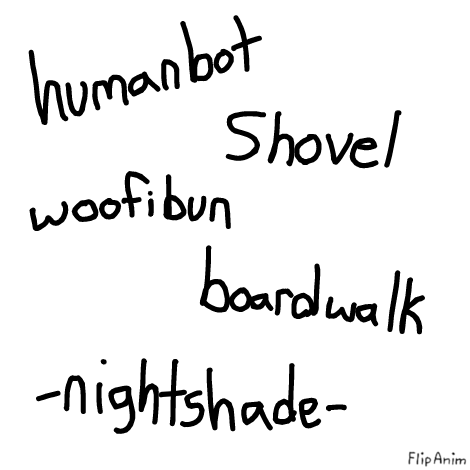 humanbot
Shovel
woofibun
boardwalk
-nightshade-
FlipAnim